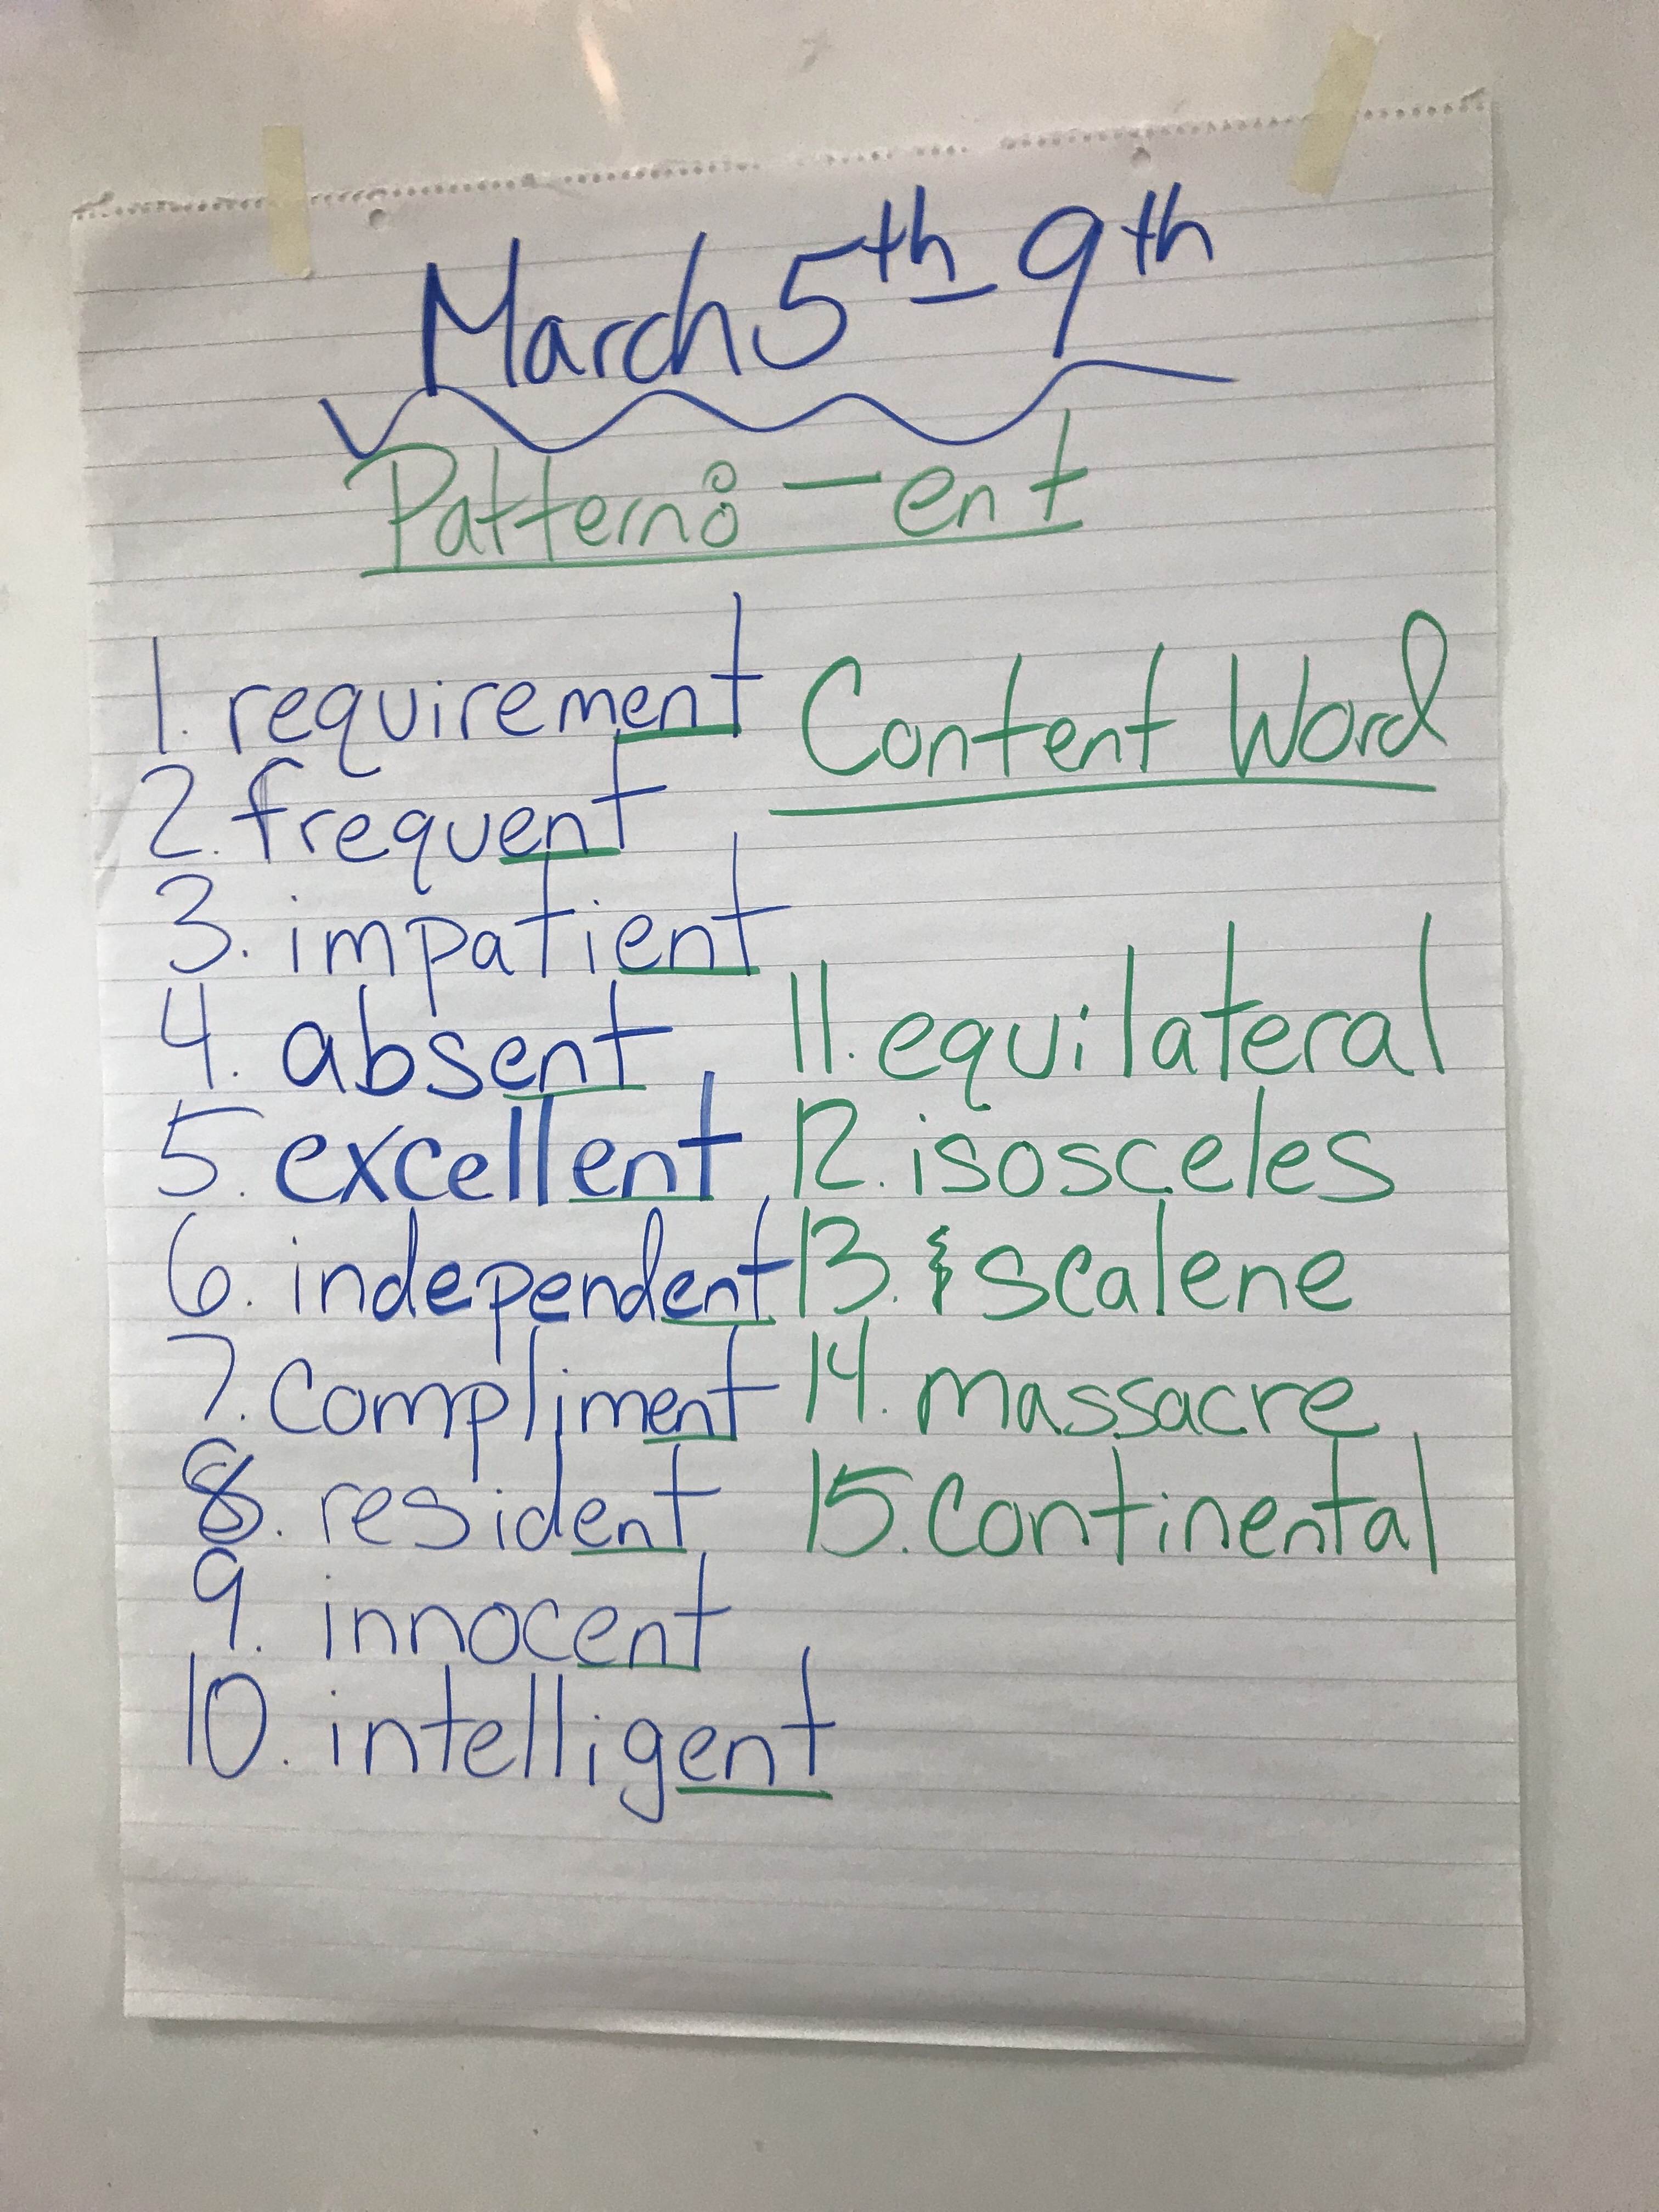 March 5th - 9th
Pattern: -ent
1. requirement
2. frequent
3. impatient
4. absent
5. excellent
6. independent
7. compliment
8. resident
9. innocent
10. intelligent
Content Word
11. equilateral
12. isosceles
13. scalene
14. massacre
15. continental